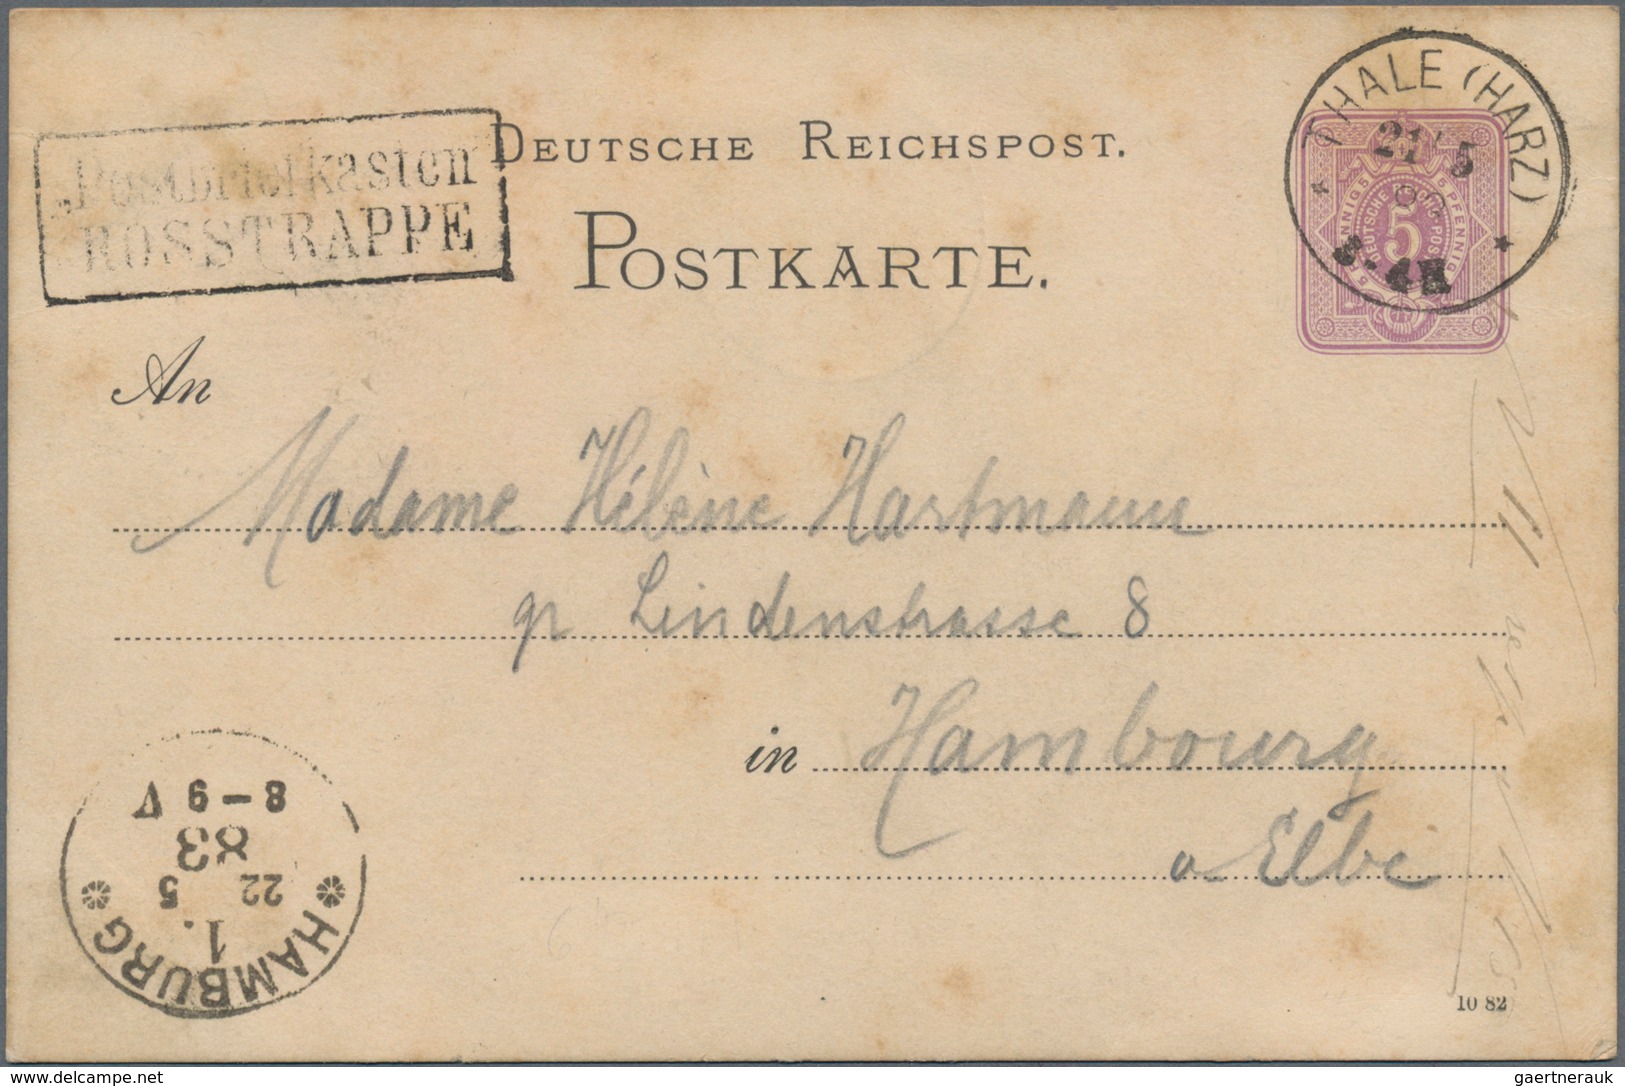 Postbriefkasten
ROSSTRAPPE
DEUTSCHE REICHSPOST.
POSTKARTE.
THALE (HARZ)
21 5
3-4N
5 PFENNIG
DEUTSCHE REICHS-POST
5
An
Madame Hélène Hartmann
gr. Lindenstrasse 8
in Hambourg
a Elbe
HAMBURG
1.
22 5
83
8-9 V
10 82
delcampe.net
gaertnerauk